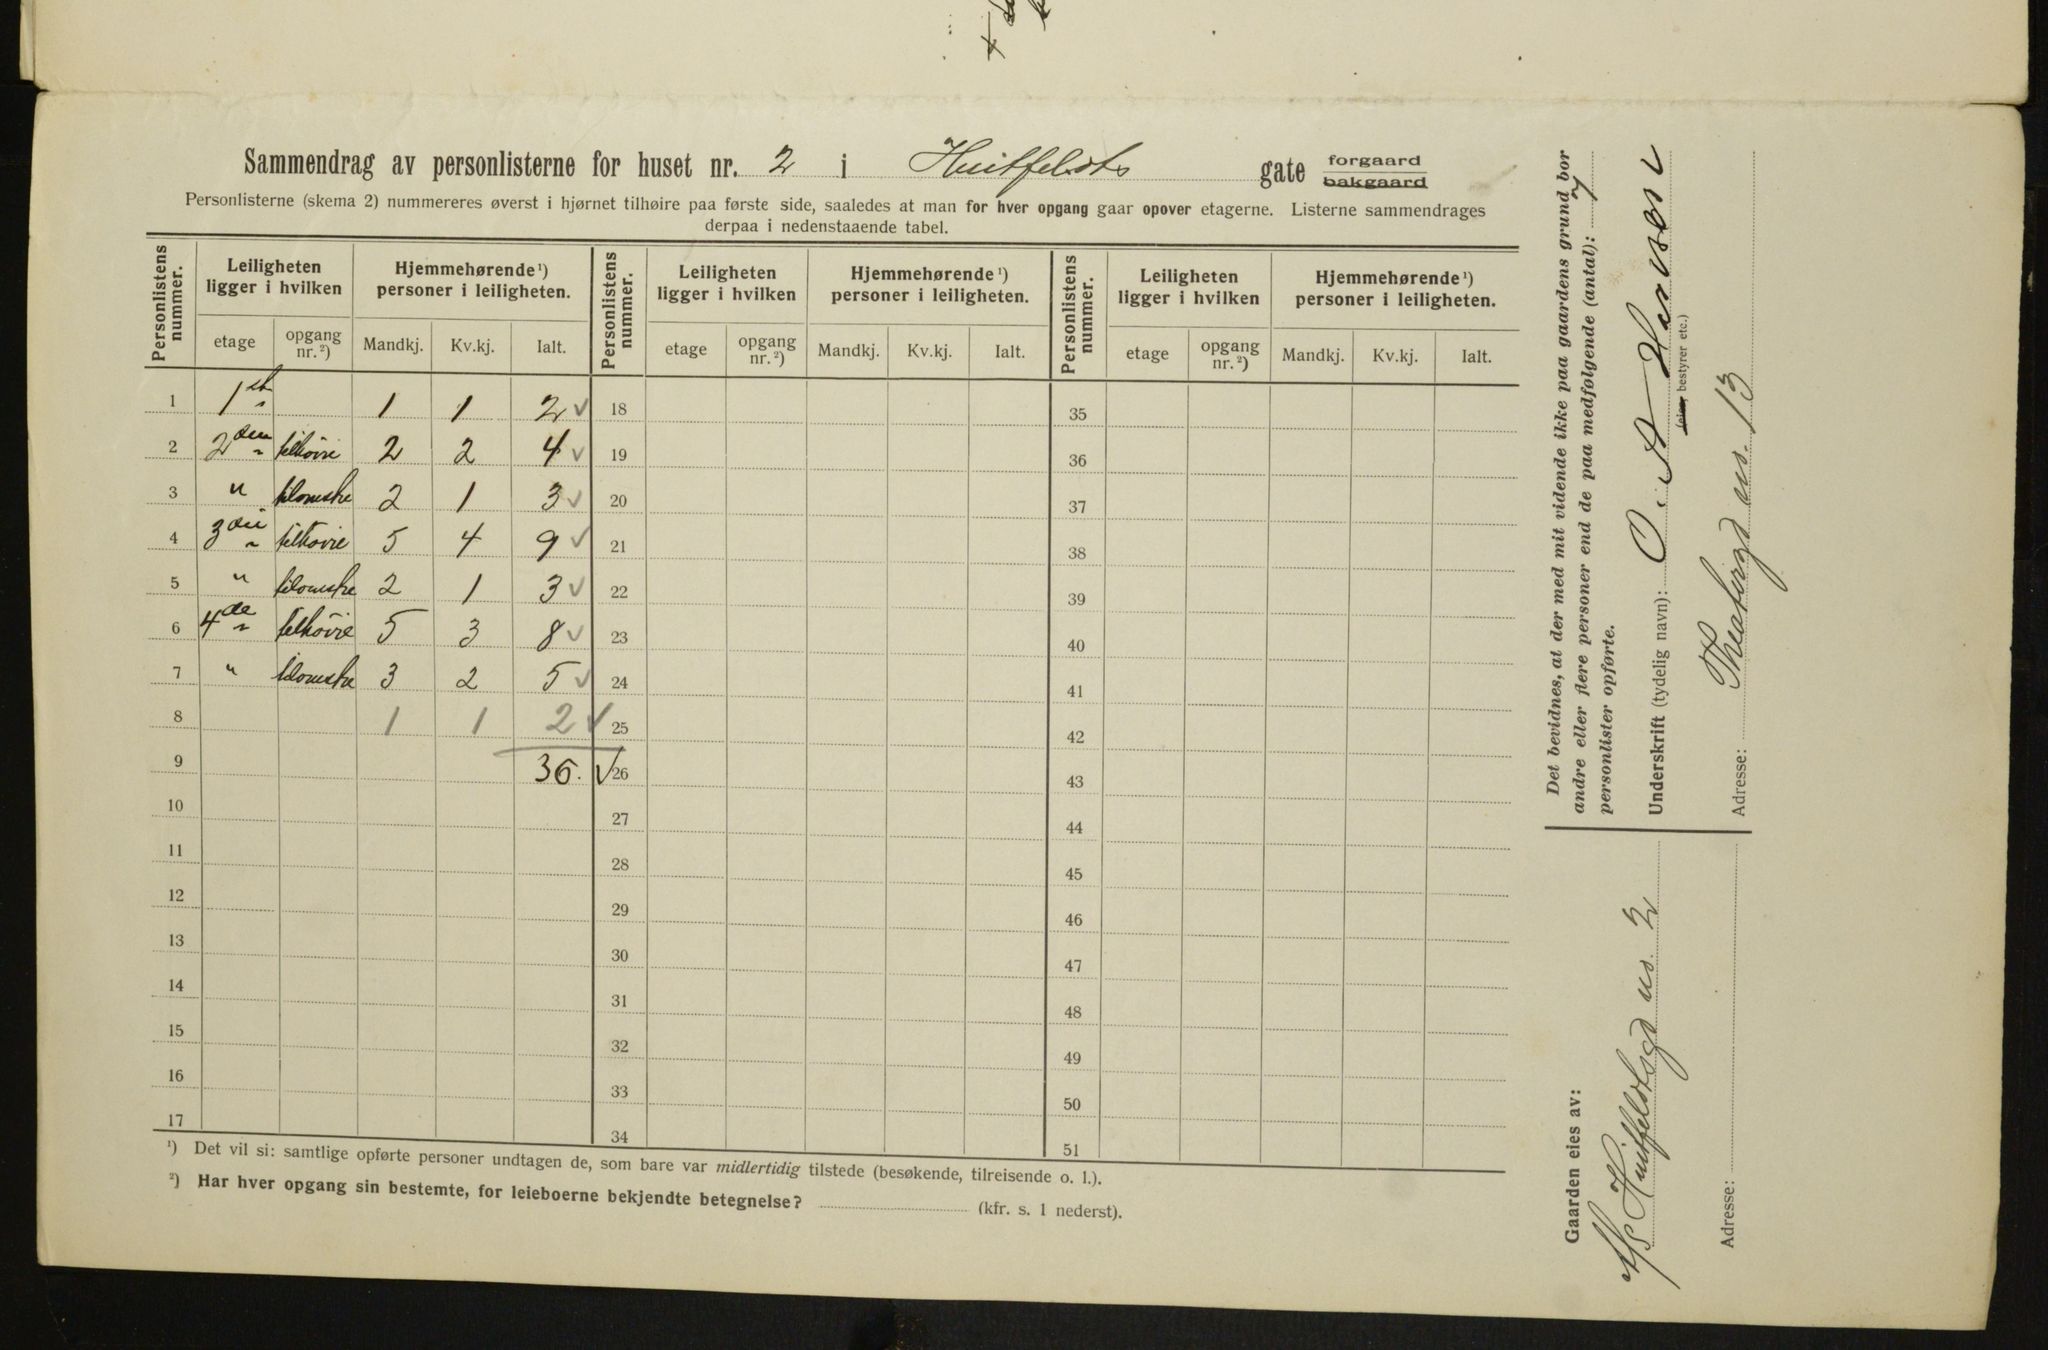 Sammendrag av personlisterne for huset nr. 2 i Huitfeldts gate forgaard bakgaard
Personlisterne (skema 2) nummereres øverst i hjørnet tilhøire paa første side, saaledes at man for hver opgang gaar opover etagerne. Listerne sammendrages
derpaa i nedenstaaende tabel.
Personlistens nummer. Leiligheten ligger i hvilken Hjemmehørende ¹) personer i leiligheten. Personlistens nummer. Leiligheten ligger i hvilken Hjemmehørende ¹) personer i leiligheten. Personlistens nummer. Leiligheten ligger i hvilken Hjemmehørende ¹) personer i leiligheten.
etage opgang nr. ²) Mandkj. Kv.kj. Ialt. etage opgang nr. ²) Mandkj. Kv.kj. Ialt. etage opgang nr. ²) Mandkj. Kv.kj. Ialt.
1 1ste 1 1 2 ✓ 18 35
2 2den tilhøire 2 2 4 ✓ 19 36
3 " tilvenstre 2 1 3 ✓ 20 37
4 3die tilhøire 5 4 9 ✓ 21 38
5 " tilvenstre 2 1 3 ✓ 22 39
6 4de tilhøire 5 3 8 ✓ 23 40
7 " tilvenstre 3 2 5 ✓ 24 41
8 1 1 2 ✓ 25 42
9 36. ✓ 26 43
10 27 44
11 28 45
12 29 46
13 30 47
14 31 48
15 32 49
16 33 50
17 34 51
¹) Det vil si: samtlige opførte personer undtagen de, som bare var midlertidig tilstede (besøkende, tilreisende o. l.).
²) Har hver opgang sin bestemte, for leieboerne bekjendte betegnelse? (kfr. s. 1 nederst).
Det bevidnes, at der med mit vidende ikke paa gaardens grund bor
andre eller flere personer end de paa medfølgende (antal): 7
personlister opførte.
Underskrift (tydelig navn): O. A Hansen
(eier, bestyrer etc.)
Adresse: Theatergd no. 13
Gaarden eies av:
A/S Huitfeldtsgd no. 2
Adresse: